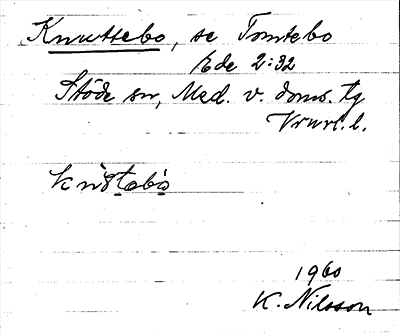 Knuttebo, se Tomtebo
Ede 2:32
Stöde sn, Med. v. doms. tg
Vrnrl. l.
1960
K. Nilsson